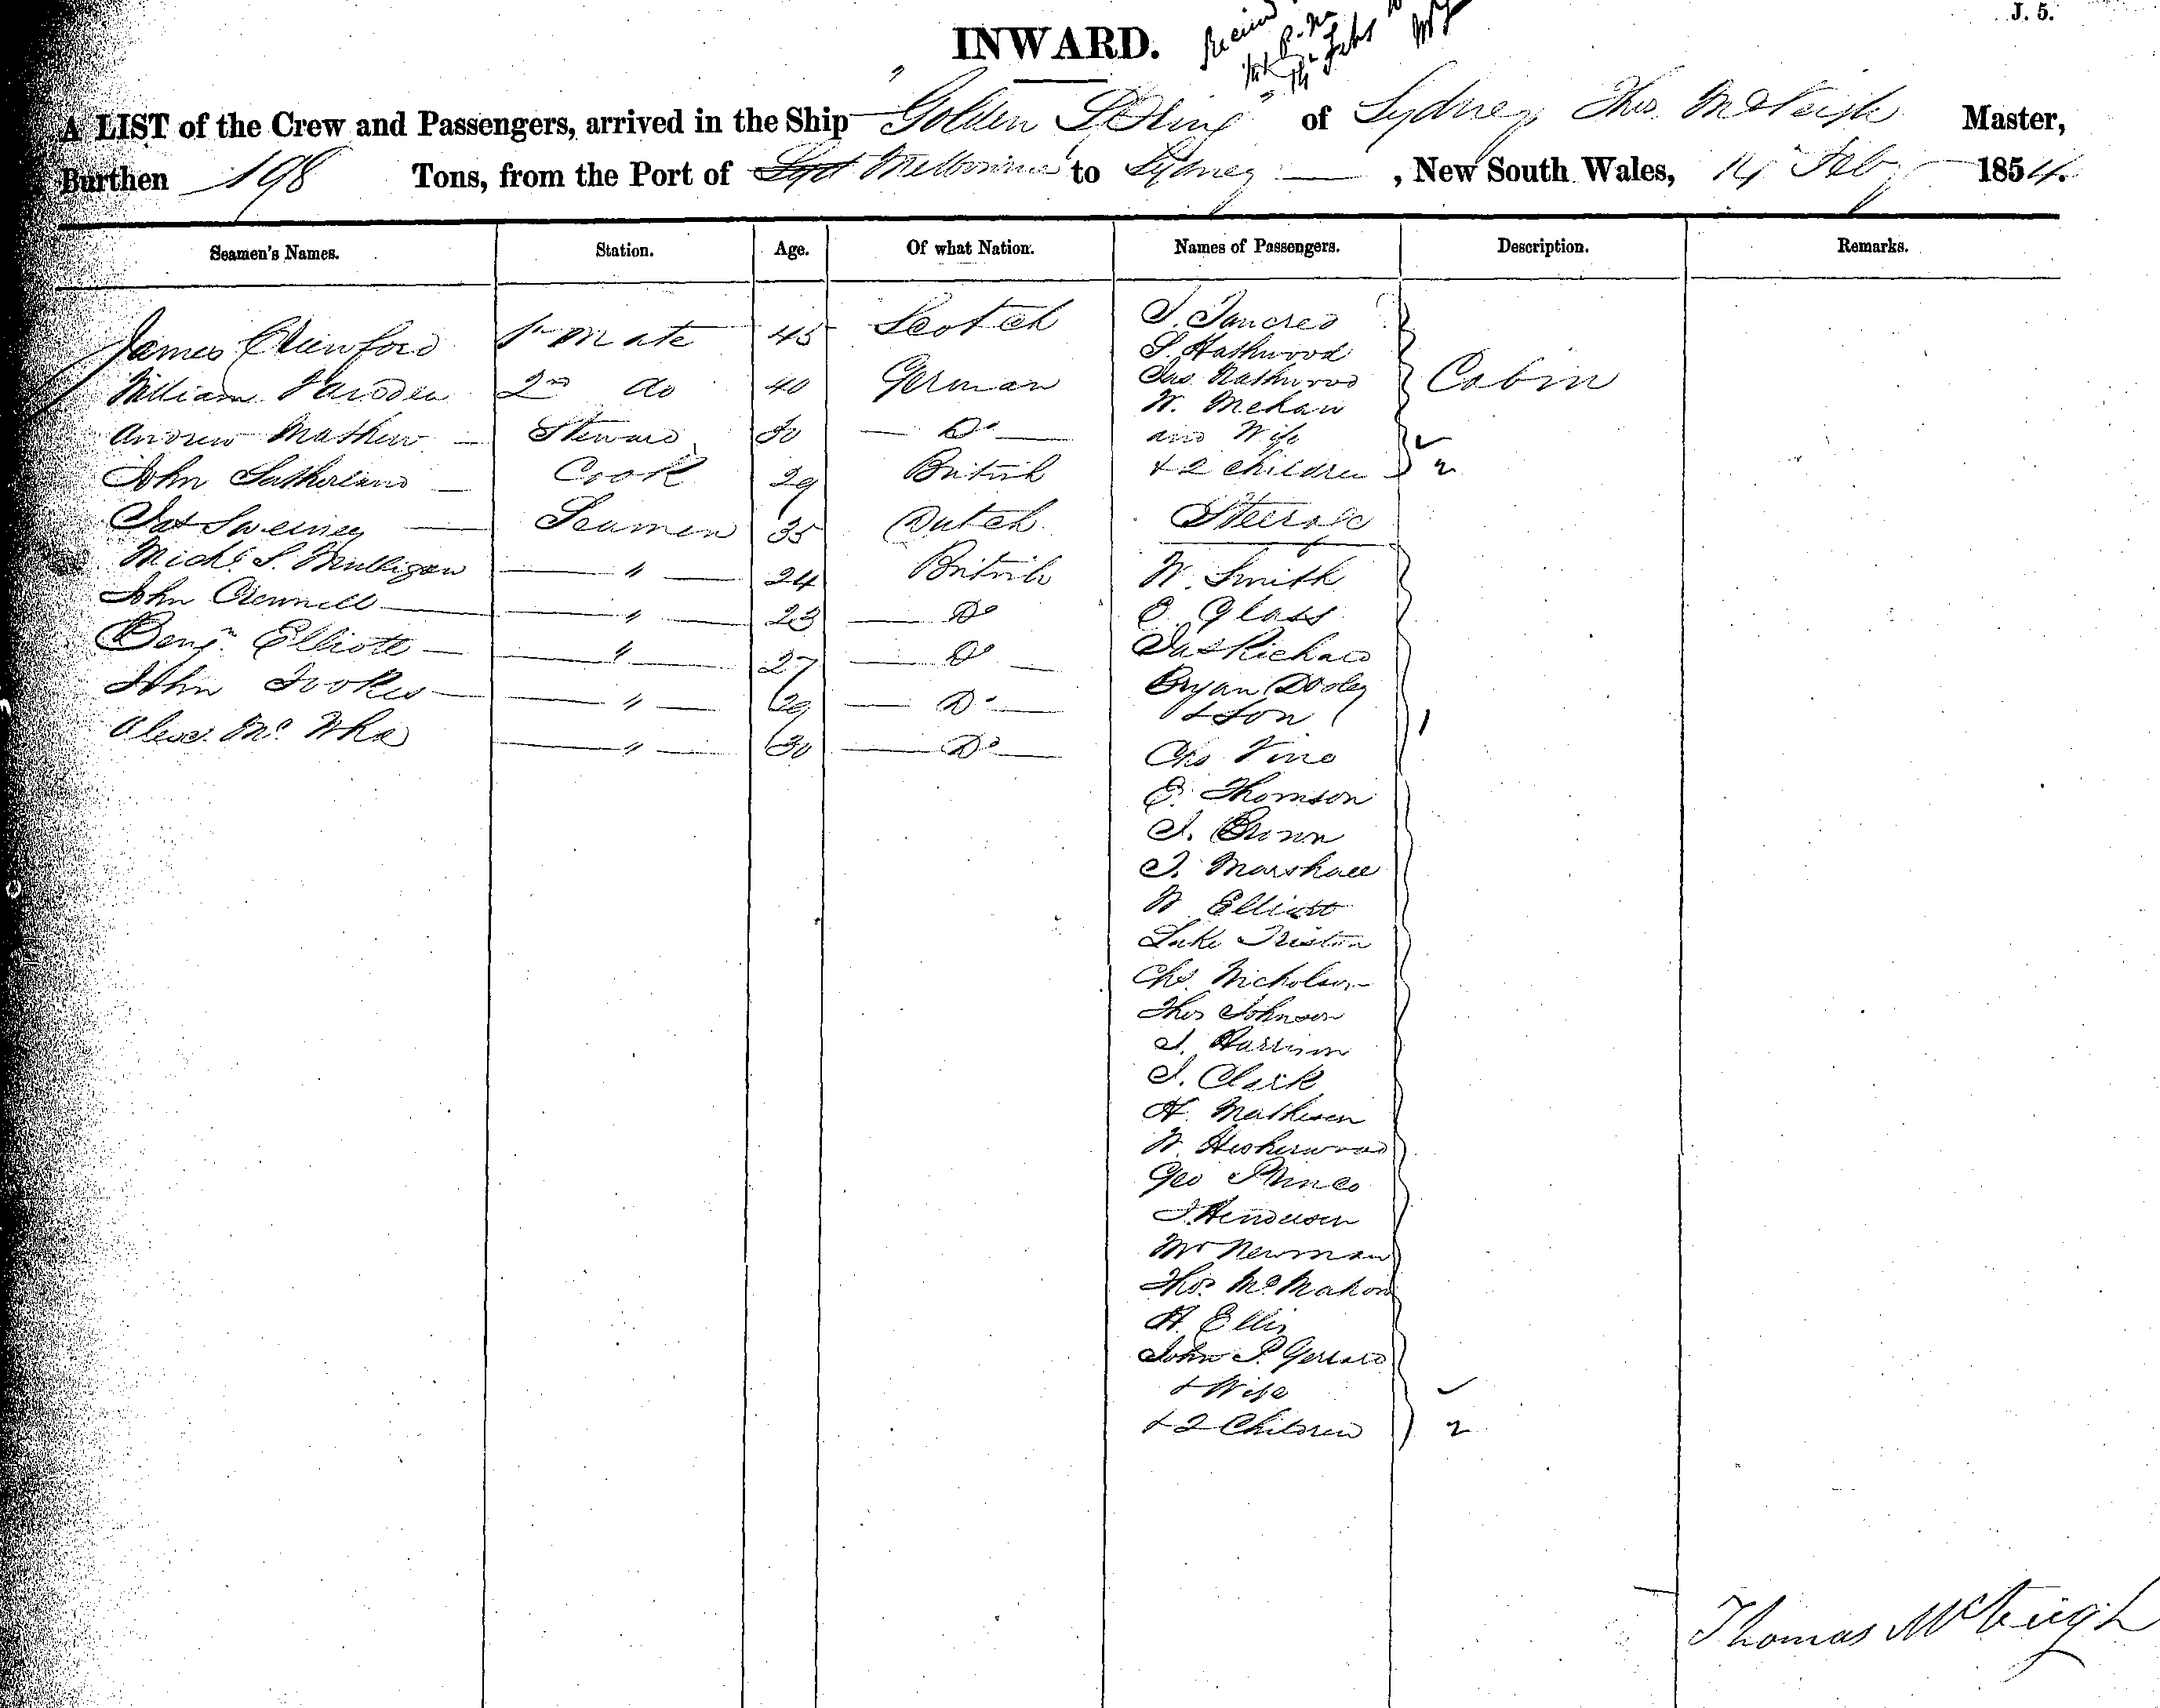 J. 5.
INWARD.
A LIST of the Crew and Passengers, arrived in the Ship "Golden Spring" of Sydney, Thos. McVeigh Master,
Burthen 198 Tons, from the Port of Melbourne to Sydney, New South Wales, 14 Feby 1854.
Seamen's Names. Station. Age. Of what Nation. Names of Passengers. Description. Remarks.
James 1st Mate 45 Scotch
William 2nd do 40 German
Andrew Mathew Steward 30 Do
John Sutherland Cook 29 British
Sweeney Seamen 35 Dutch
Michl. S. Mulligan " 24 British
John " 23 Do
Benjn. Elliott " 27 Do
John Tookes " 29 Do
Mc " 30 Do
J. Tancred
Jas
W.
and Wife
& 2 Children
Cabin
2
Steerage
W. Smith
E. Glass
Jas Richard
Bryan Dooley
& Son
1
Chs Vine
E. Thomson
J.
J. Marshall
W Elliott
Luke
Chs. Nicholson
Thos Johnson
J. Harrison
J. Clark
H. Mathesen
W
Geo Prince
J. Henderson
Mr Newman
Thos. McMahon
H. Ellis
John P. Gerrard
& Wife
& 2 Children
2
Thomas McVeigh